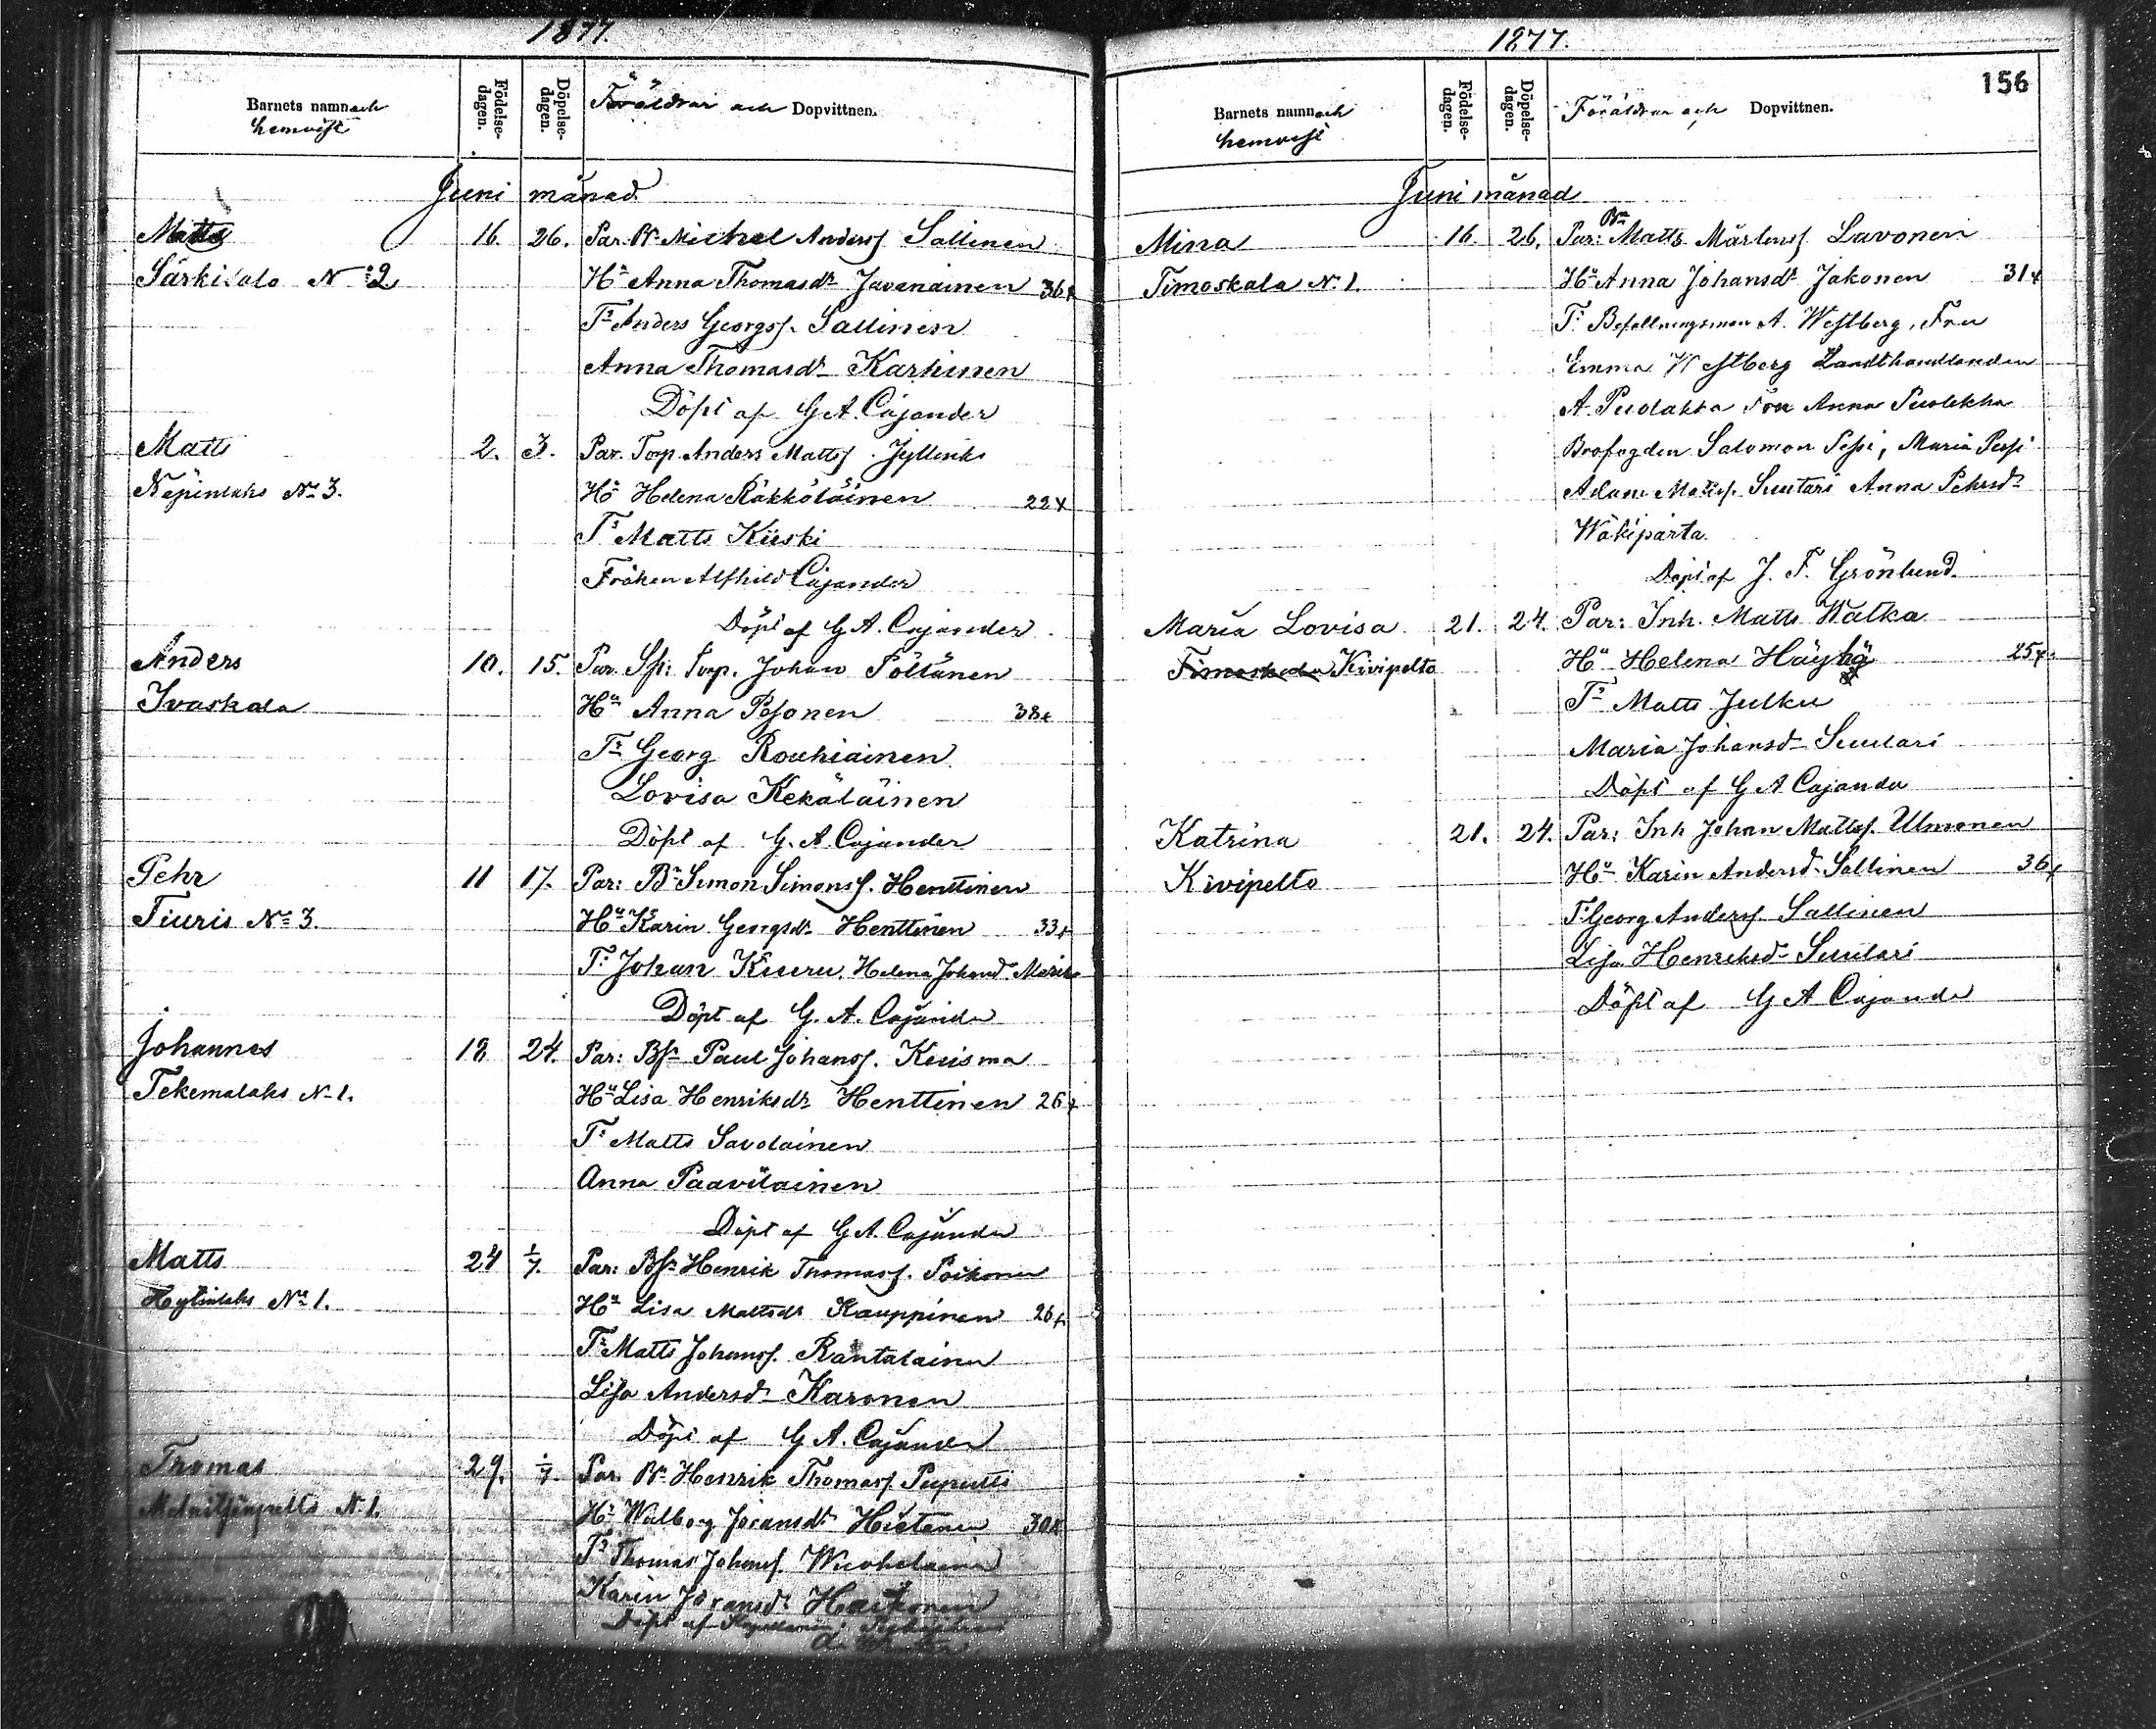 1877.
Barnets namn och
hemvist
Födelse-
dagen.
Döpelse-
dagen.
Föräldrar och Dopvittnen.
Juni månad
Matts 16. 26. Par. Bn Michel Andersf Sallinen
Särkisalo No 2 Hu Anna Thomasdr Javanainen 36+
Ts Anders Georgsf. Sallinen
Anna Thomasdr Karhinen
Döpt af G. A. Cajander
Matts 2. 3. Par. Torp. Anders Mattsf. Jyllinki
No 3. Hu Helena Räkköläinen 22+
Ts Matts Kiiski
Fröken Alfhild Cajander
Döpt af G A. Cajander
Anders 10. 15. Par. Torp. Johan Pöllänen
Ivaskala Hu Anna Pesonen 38+
Ts Georg Rouhiainen
Lovisa Kekäläinen
Döpt af G. A. Cajander
Pehr 11 17. Par: Bn Simon Simonsf. Henttinen
Tiuris No 3. Hu Karin Georgsdr Henttinen 33+
Ts Johan Kiuru, Helena Johansd.
Döpt af G. A. Cajander
Johannes 18 24. Par: Bsn Paul Johansf. Kuisma
Tekemalaks No 1. Hu Lisa Henriksdr Henttinen 26+
Ts Matts Savolainen
Anna Paavilainen
Döpt af G A. Cajander
Matts 24 1/7. Par: Bsn Henrik Thomasf. Poikonen
No 1. Hu Lisa Mattsdr Kauppinen 26+
Ts Matts Johansf. Rantalainen
Lisa Andersdr Karonen
Döpt af G A. Cajander
Thomas 29. 1/7. Par. Bn Henrik Thomasf. Puputti
No 1. Hu Walborg Johansdr Hietanen 30+
Ts Thomas Johansf.
Karin Johansdr Haikonen
Döpt af
1877.
156
Barnets namn och
hemvist
Födelse-
dagen.
Döpelse-
dagen.
Föräldrar och Dopvittnen.
Juni månad
Mina 16. 26. Par: Bn Matts Mårtensf Lavonen
Timoskala No 1. Hu Anna Johansdr Jakonen 31+
Ts Befallningsman A. Westberg, Fru
Emma Westberg Landthandlanden
A. Puolakka Fru Anna Puolakka
Brofogden Salomon Pessi, Maria Pessi
Adam Mattsf. Suutari Anna Pehrsdr
Wäkiparta
Döpt af J. F. Grönlund.
Maria Lovisa 21. 24. Par: Inh. Matts Watka
Timoskala Kivipelto Hu Helena Häyhä 25+
Ts Matts Julku
Maria Johansdr Suutari
Döpt af G A Cajander
Katrina 21. 24. Par: Inh Johan Mattsf. Ulmonen
Kivipelto Hu Karin Andersdr Sallinen 36+
Ts Georg Andersf. Sallinen
Lisa Henriksdr Suutari
Döpt af G A Cajander